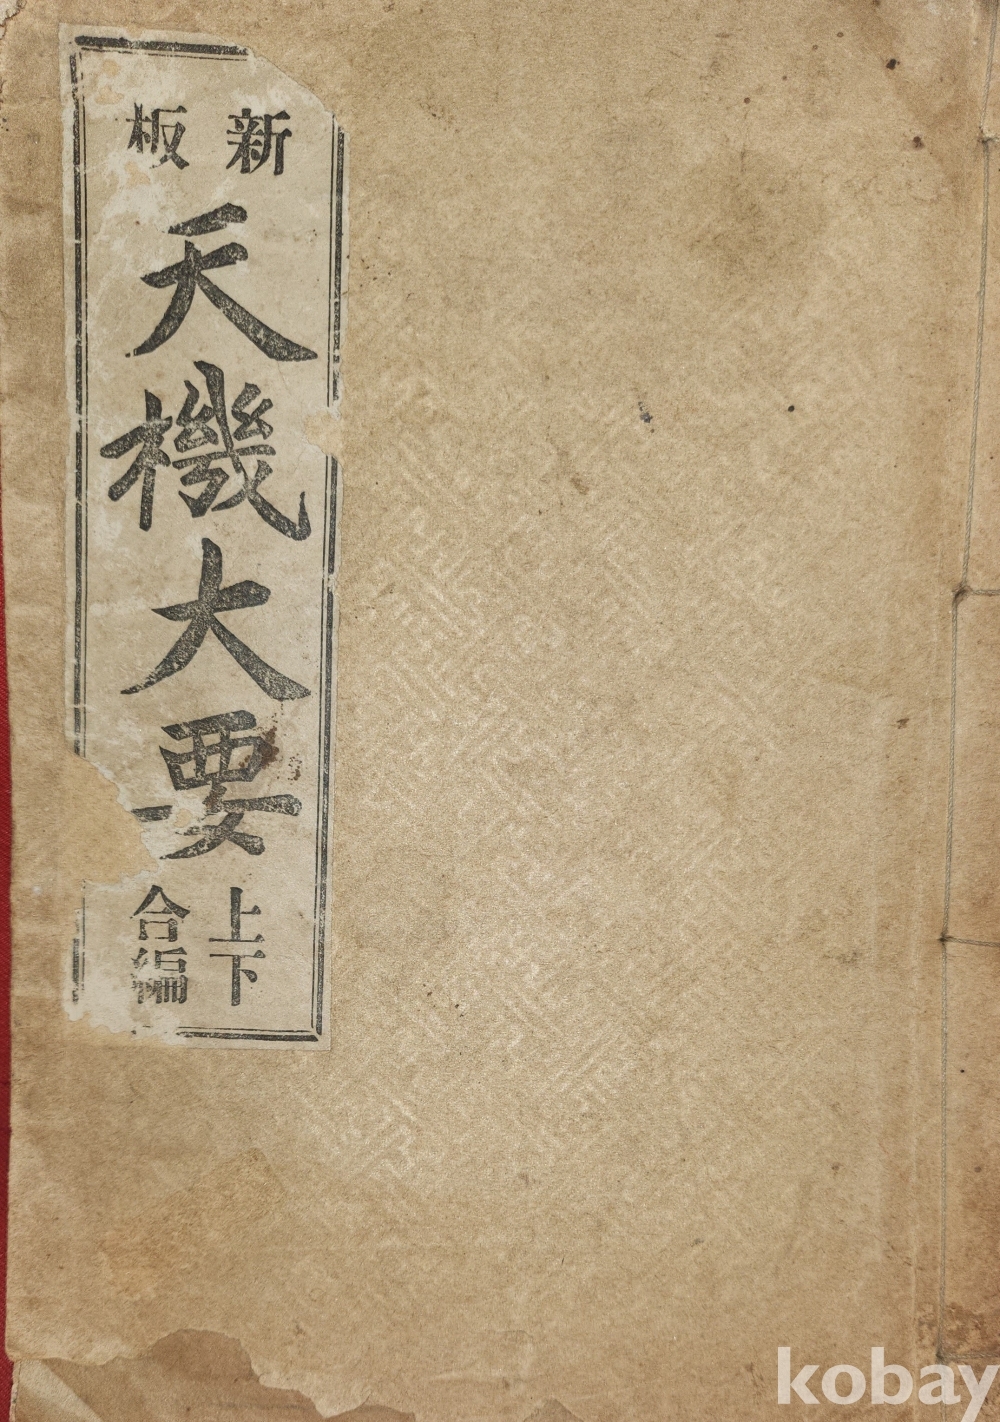 新板
天機大要
上下
合編
kobay